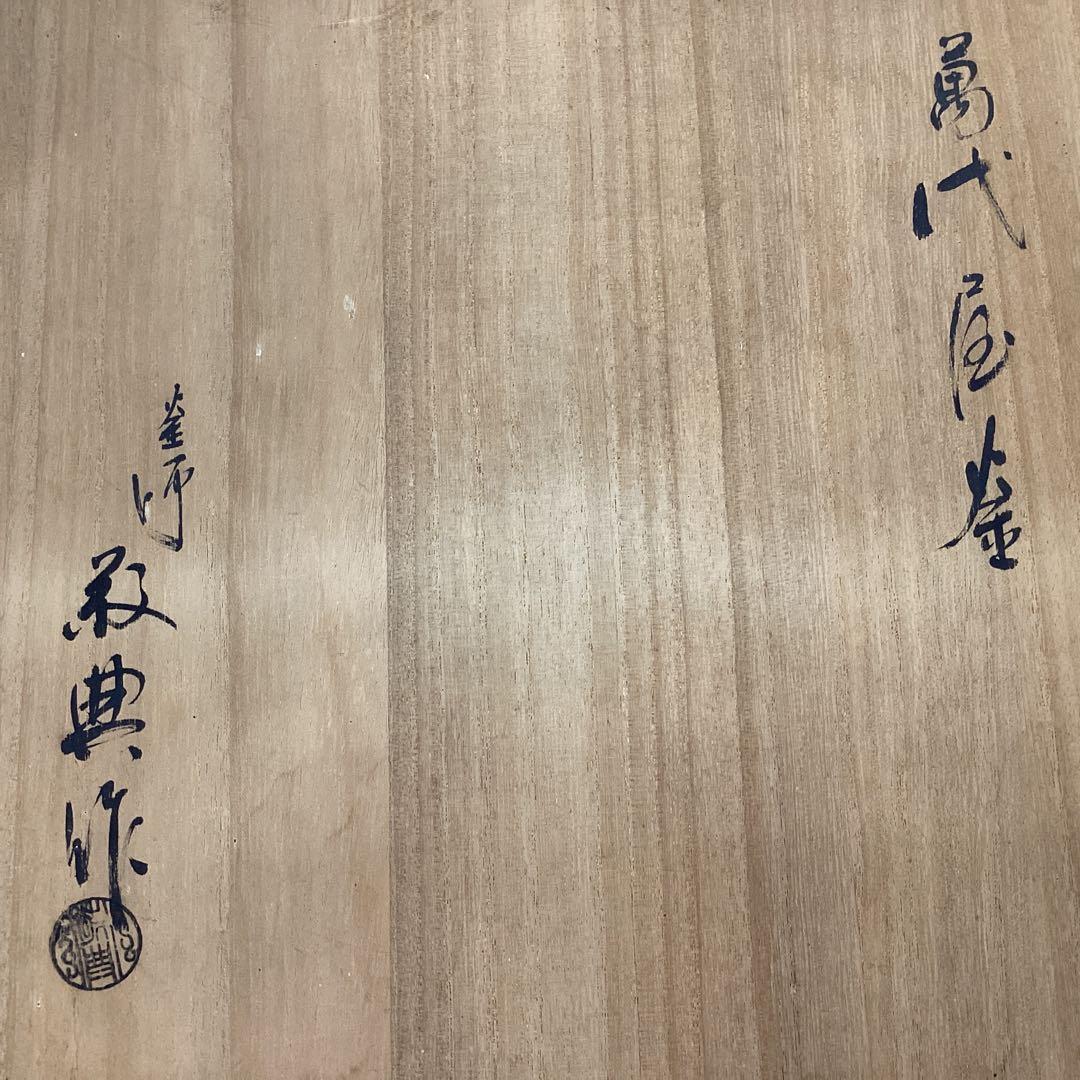 萬代屋釜
釜師
敬典作